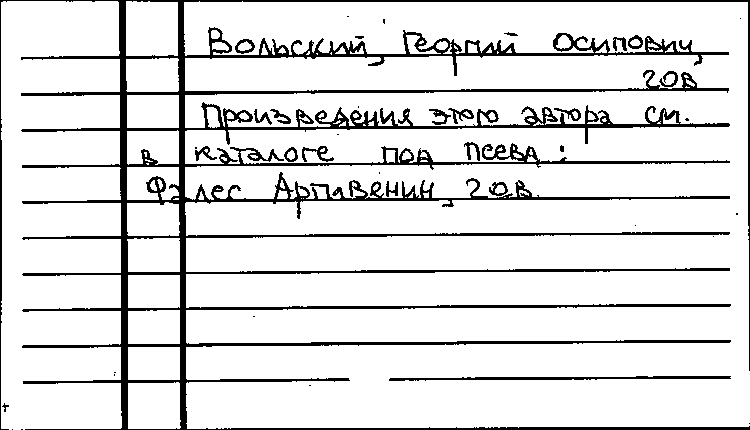 Вольский, Георгий Осипович,
20в
Произведения этого автора см.
в каталоге под псевд:
Фалес Аргивенин, 20в.